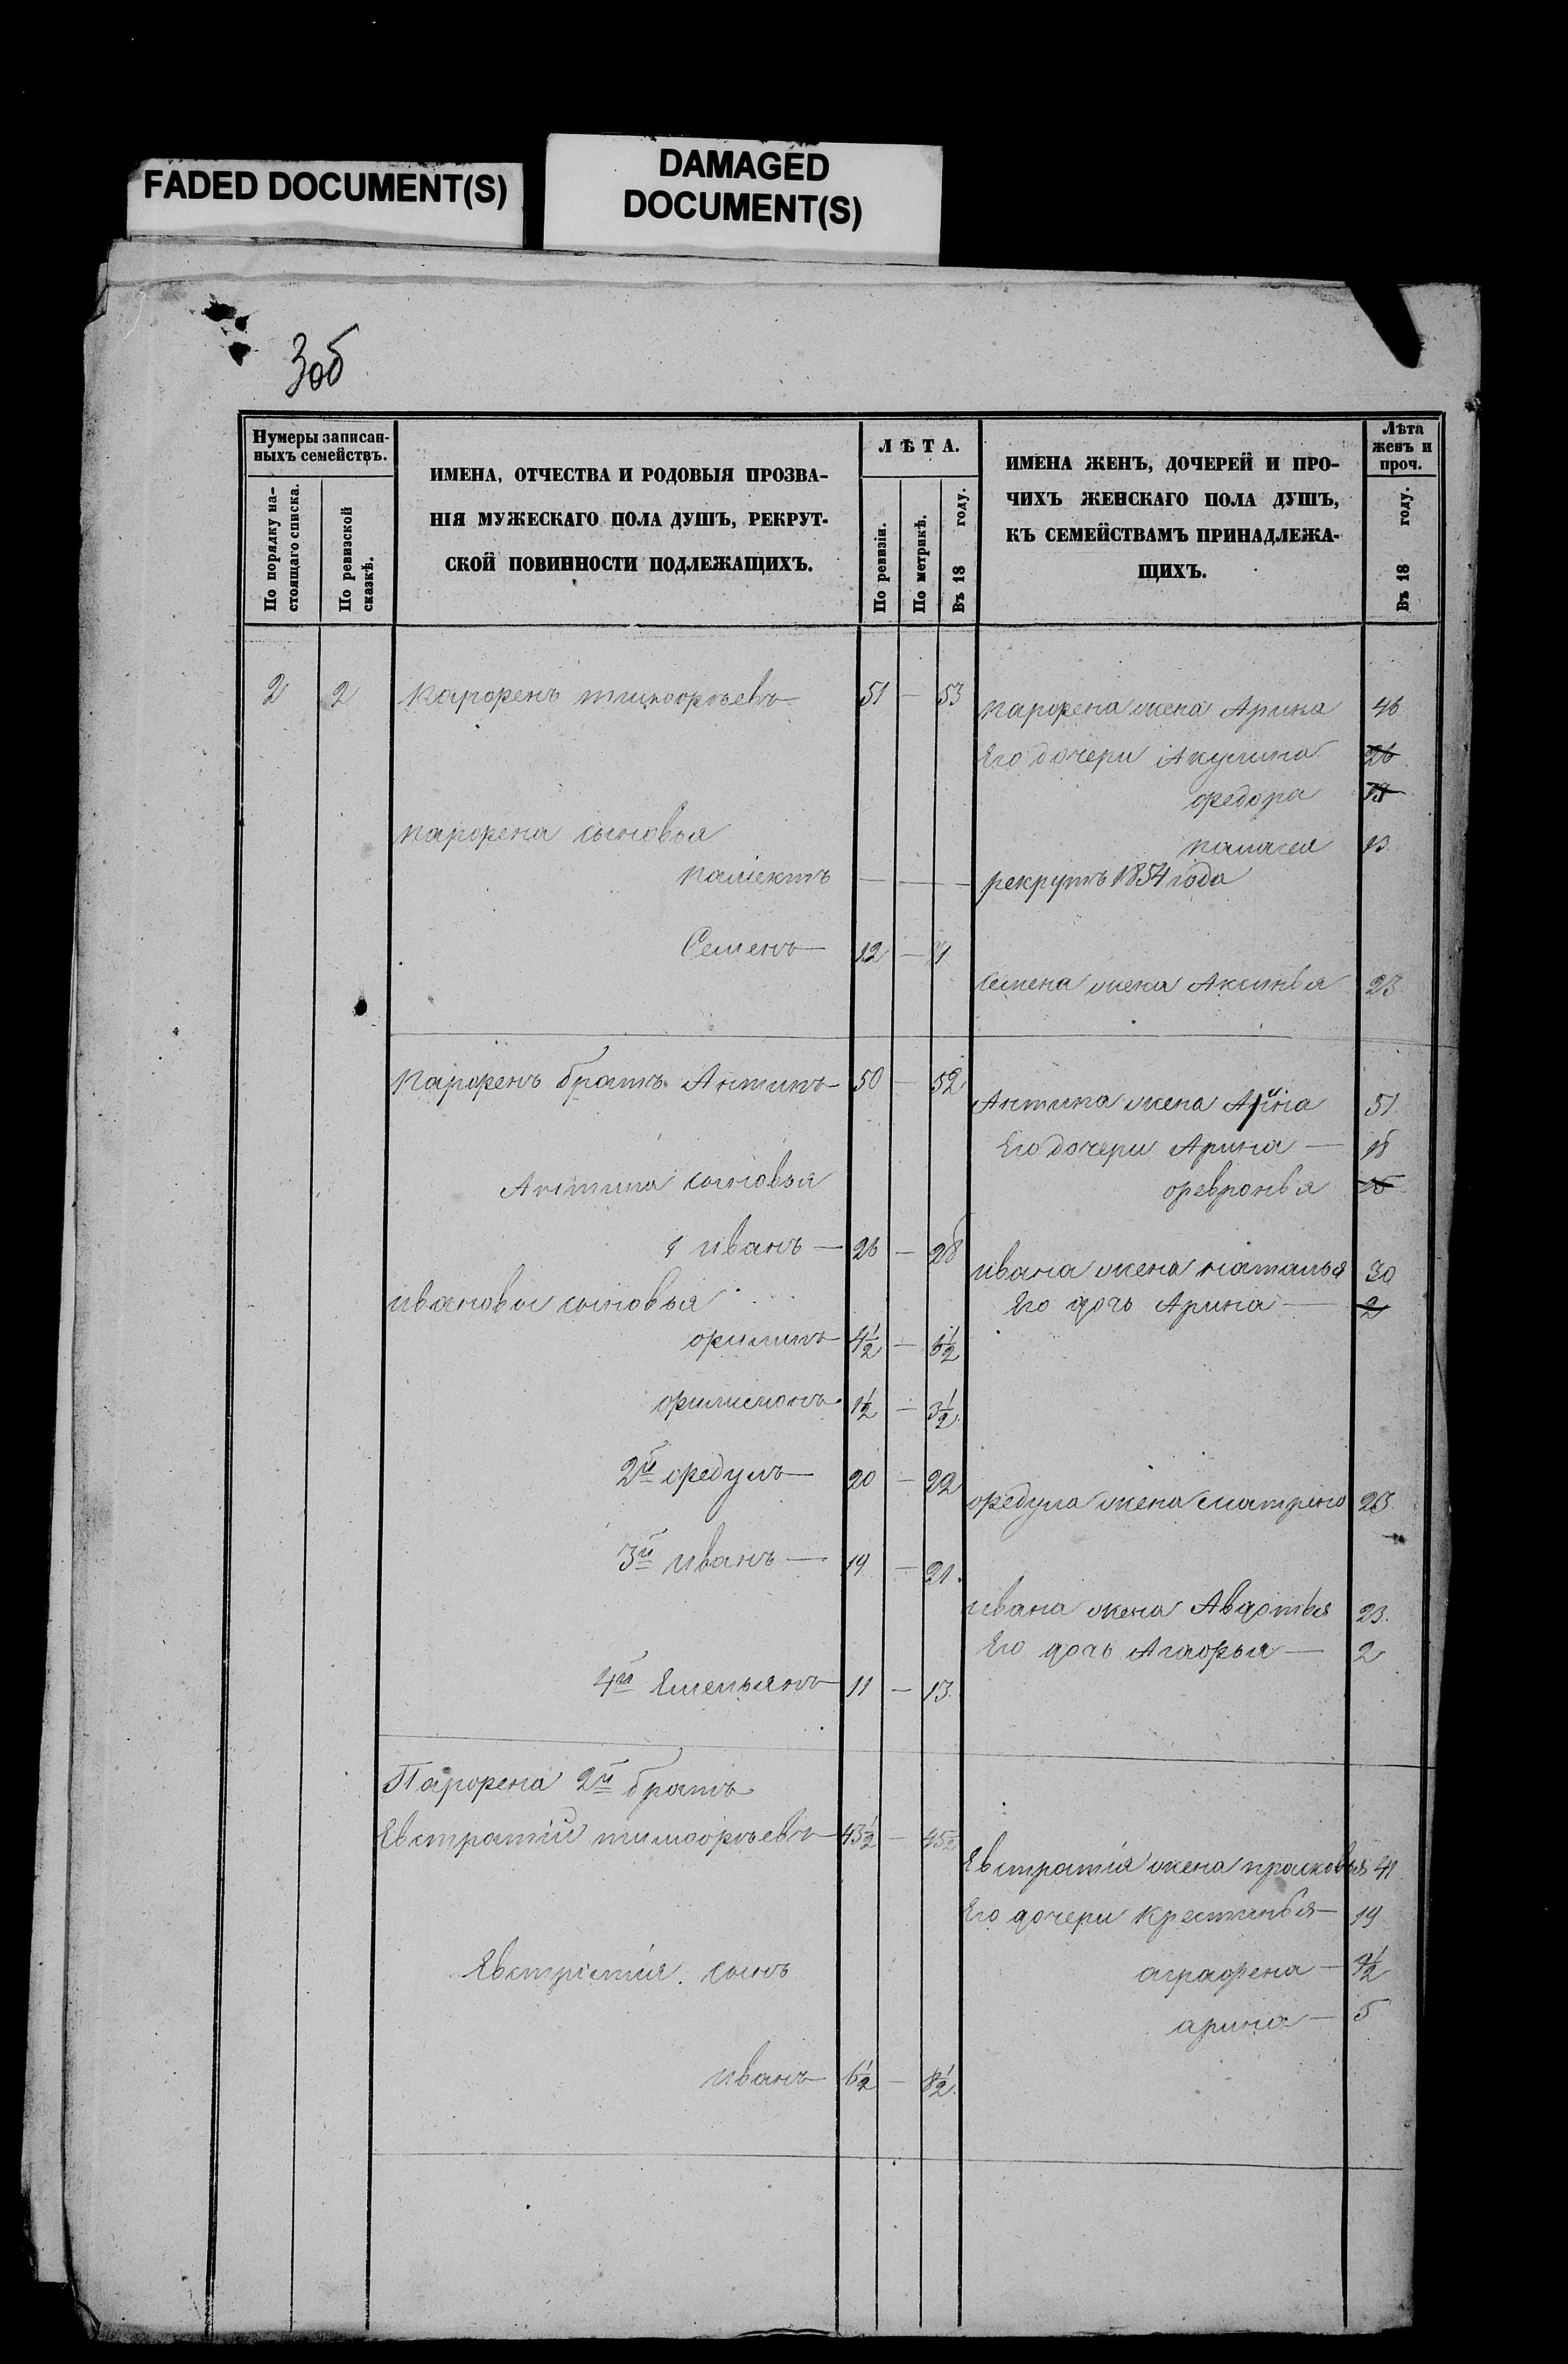 FADED DOCUMENT(S)
DAMAGED
DOCUMENT(S)
Нумеры записан-
ныхъ семействъ.
По порядку на-
стоящаго списка.
По ревизской
сказкѣ.
ИМЕНА, ОТЧЕСТВА И РОДОВЫЯ ПРОЗВА-
НІЯ МУЖЕСКАГО ПОЛА ДУШЪ, РЕКРУТ-
СКОЙ ПОВИННОСТИ ПОДЛЕЖАЩИХЪ.
ЛѢТА.
По ревизіи.
По метрикѣ.
Въ 18 году.
ИМЕНА ЖЕНЪ, ДОЧЕРЕЙ И ПРО-
ЧИХЪ ЖЕНСКАГО ПОЛА ДУШЪ,
КЪ СЕМЕЙСТВАМЪ ПРИНАДЛЕЖА-
ЩИХЪ.
Лѣта
женъ и
проч.
Въ 18 году.
2 2 парфенъ тимофѣевъ 51 — 53
парфена жена Арина 46
Его дочери Акулина 26
федора
парфена сыновья
палагея 13
— — — рекрутъ 1854 года
Семенъ — 12 —
Семена жена Аксинья 23
парфенъ братъ Антипъ 50 — 52
Антипа жена 51
Его дочери Арина — 18
Антипа сыновья
февронья
1 иванъ — 26 — 28
ивана жена наталья 30
ивановы сыновья
Его дочь Арина — 2
филипъ 4½ — 6½
филимонъ 1½ — 3½
2й федулъ — 20 — 22
федула жена матрена 23
3й иванъ — 19 — 21.
ивана жена Авдотья 23.
Его дочь Агафья — 2
4й Емельянъ 11 — 13
Парфена 2й братъ
Евстратій тимофѣевъ 43½ — 45½
Евстратія жена прасковья 41
Его дочери крестинья 19
Евстратія сынъ
аграфена — 9½
арина — 5
иванъ 6½ — 8½